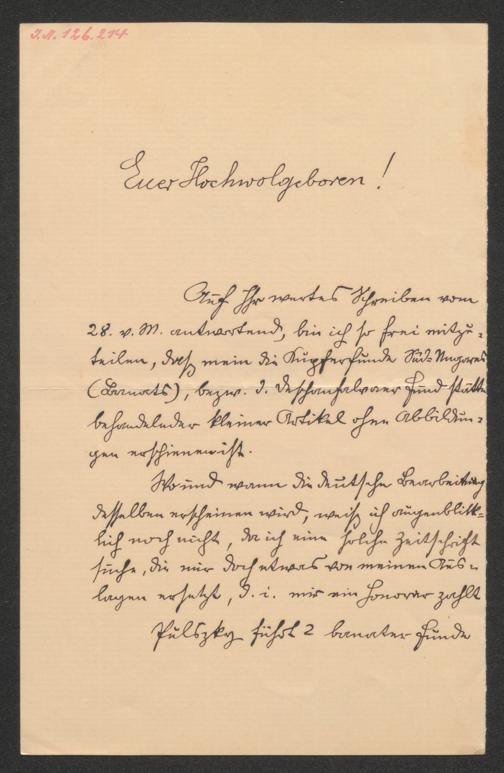 J.N. 126.214
Euer Hochwolgeboren!
Auf Ihr wertes Schreiben vom
28. v. M. antwortend, bin ich so frei mitzu-
teilen, daß mein die Kupferfunde Süd-Ungarns
(Banats), bezw. d. Fundstätte
behandelnder kleiner Artikel ohne Abbildun-
gen erschienen ist.
Wo und wann die deutsche Bearbeitung
desselben erscheinen wird, weiß ich augenblick-
lich noch nicht, da ich eine solche Zeitschrift
suche, die mir doch etwas von meinen Aus-
lagen ersetzt, d. i. mir ein Honorar zahlt
Pulszky führt 2 banater Funde